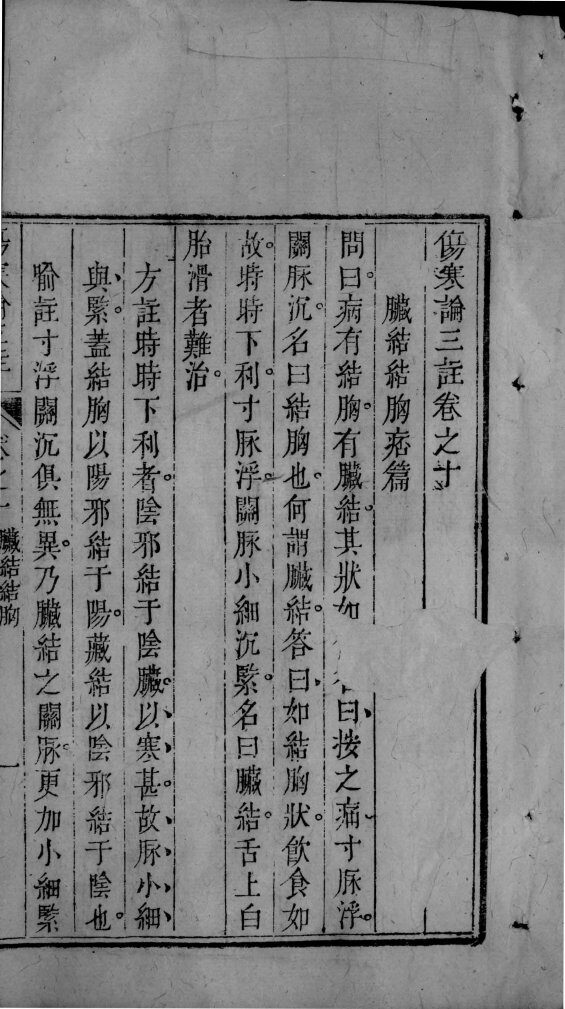 傷寒論三註卷之十
臟結結胸痞篇
問曰。病有結胸。有臟結。其狀如曰、按之痛、寸脉浮。
關脉沉。名曰結胸也。何謂臟結。答曰、如結胸狀。飲食如
故。時時下利。寸脉浮。關脉小細沉緊。名曰臟結。舌上白
胎滑者難治。
方註時時下利者。陰邪結于陰臟。以、寒、甚。故、脉、小、細、
與、緊。蓋結胸以陽邪結于陽。藏結以陰邪結于陰也。
喻註寸浮關沉俱無異。乃臟結之關脉。更加小細緊
臟結結胸
一